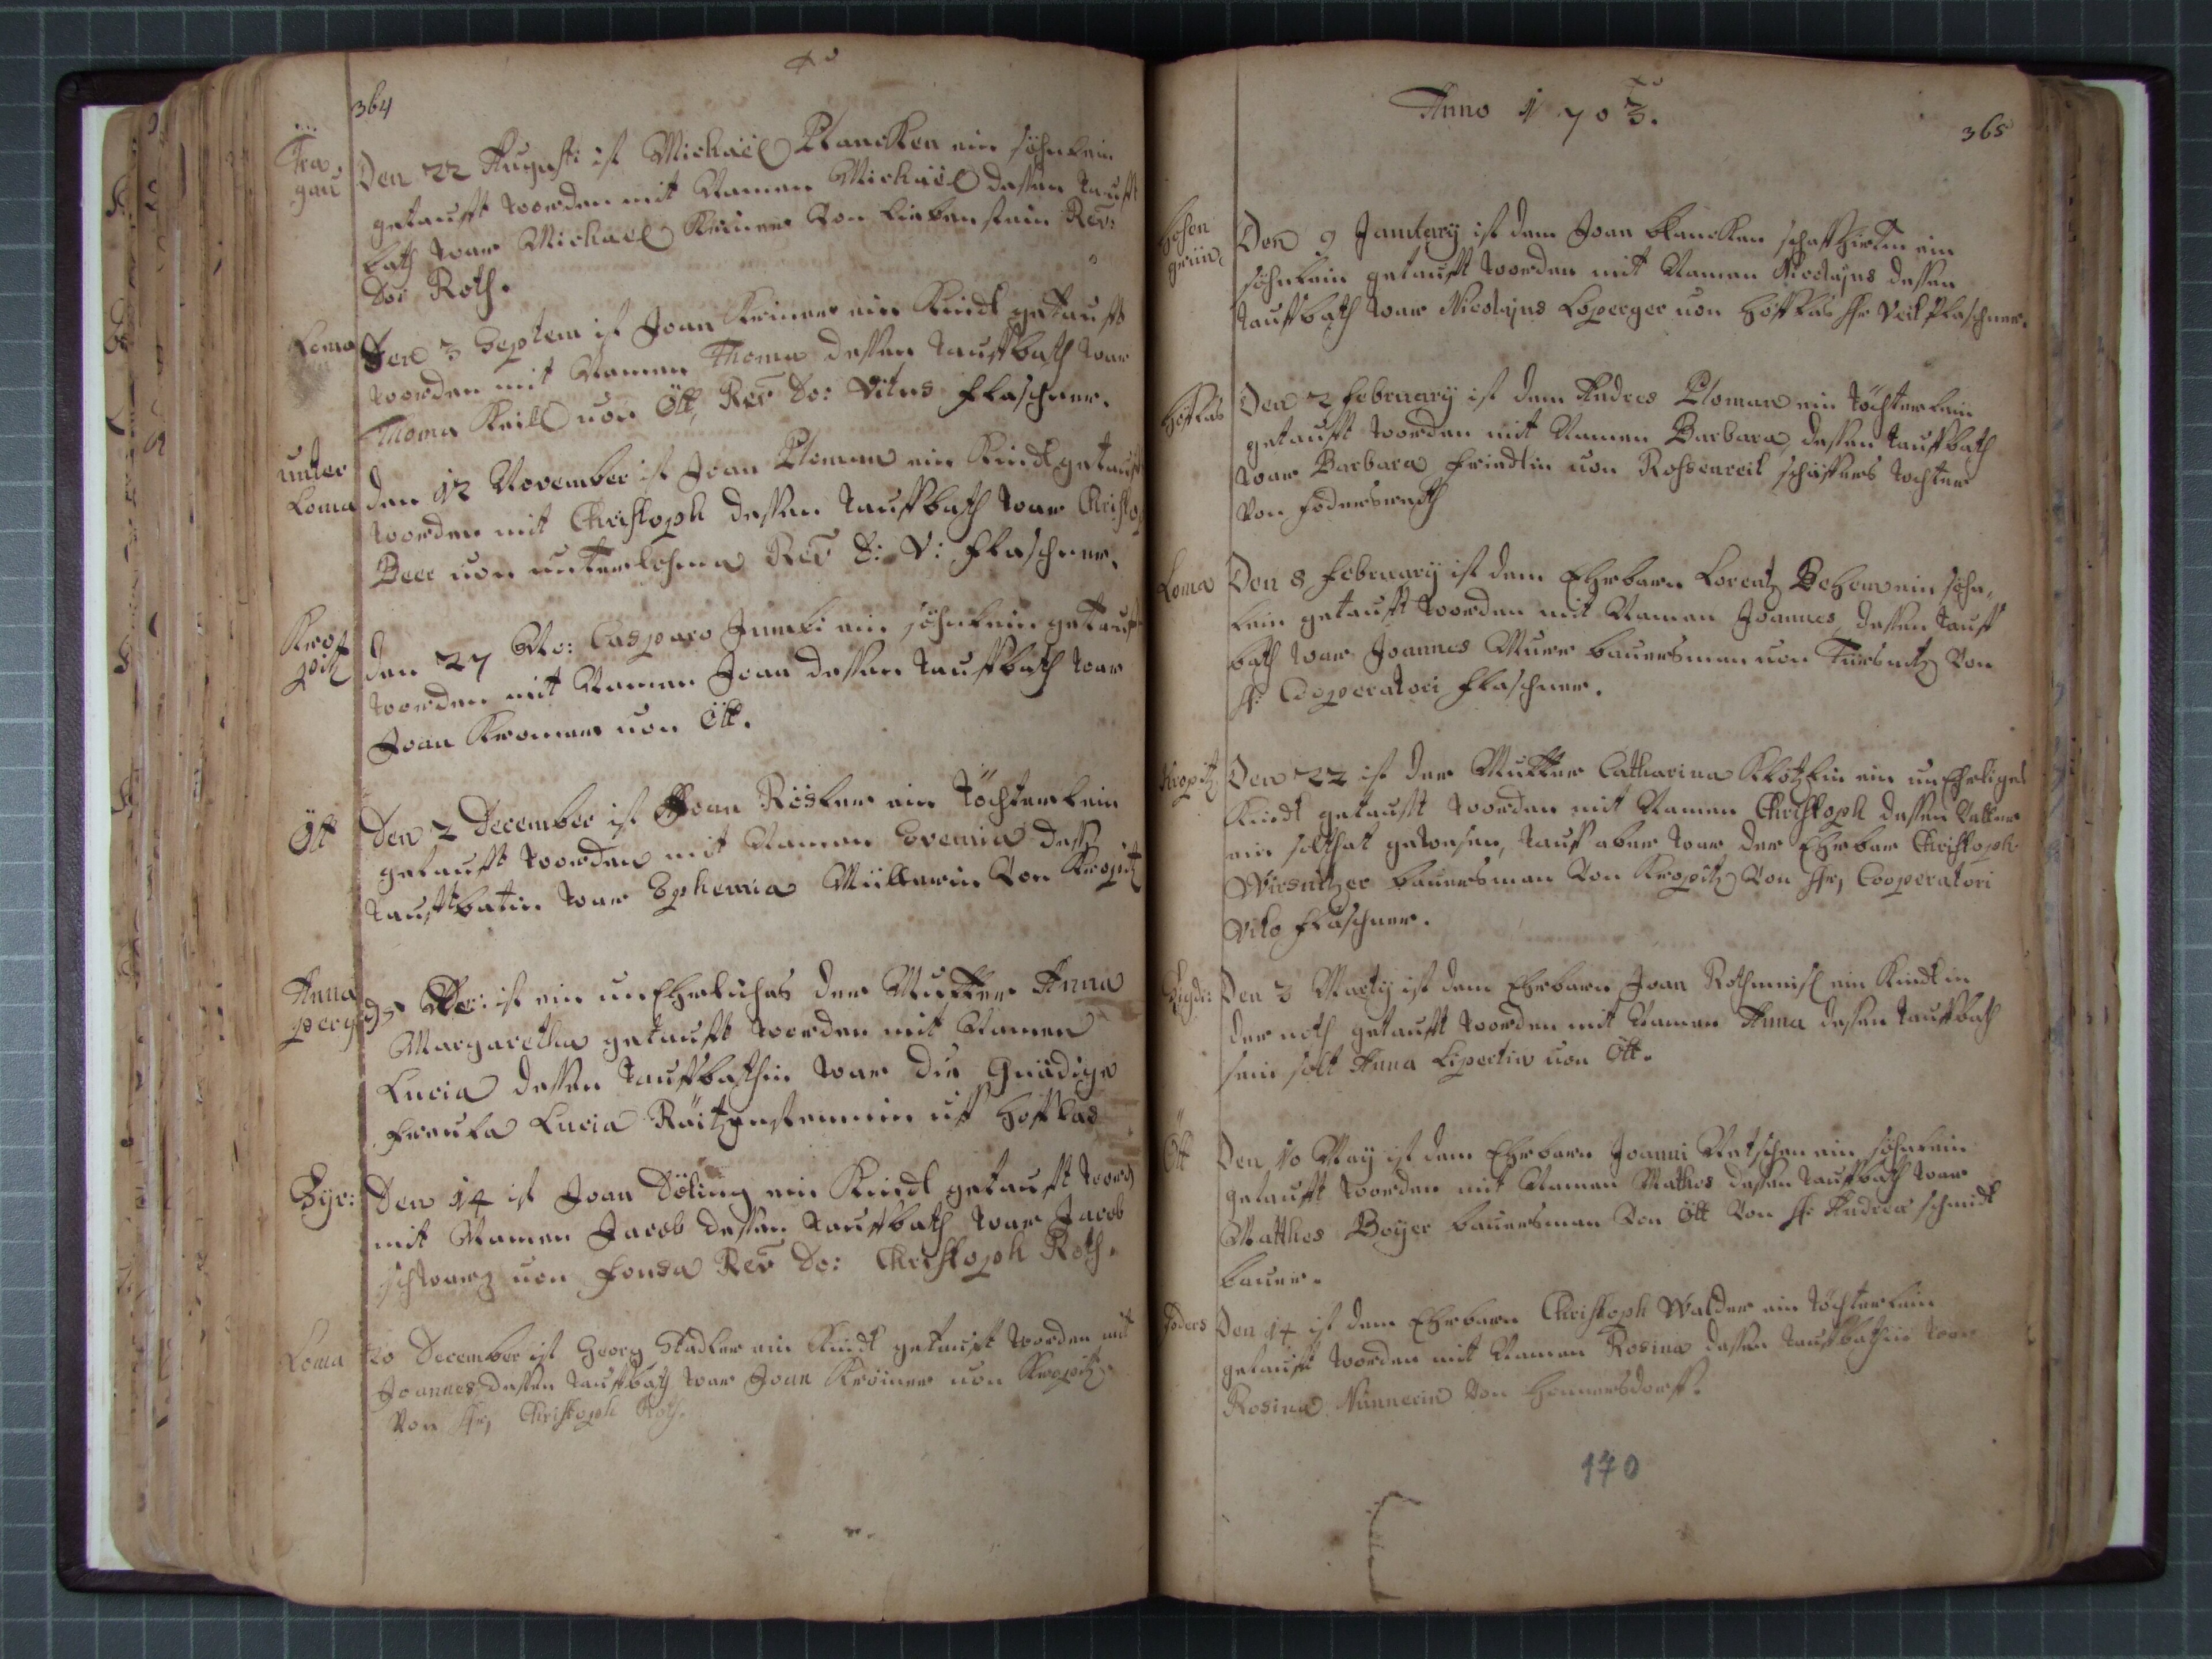 364
Tra,
gau
Den 22 Augusti ist Michaël Planckhen ein söhnlein
getaufft worden mit Namen Michaël dessen tauff
bath war Michael Kriner von Liebenstein Rev:
Do: Roth.
Loma
Den 3 Septem ist Joan Kriner ein Kindt getaufft
worden mit Namen Thoma dessen tauffbath war
Thoma Keill von Ött, Rev Do: Vitus Flaschner.
unter
Loma
den 12 November ist Joan Ploman ein Kindt getaufft
worden mit Christoph dessen tauffbath war Christo
Beer von unterlohma Rev D: V: Flaschner.
Kro,
pitz
den 27 No: Casparo ein söhnlein getaufft
worden mit Namen Joan dessen tauffbath war
Joan Kromer von Ött.
Ött
Den 2 December ist Joan Rösler ein töchterlein
getaufft worden mit Namen Evemia dess
tauffbatin war Ephemia Müllerin von Kropitz
Anna
perg
ist ein unEhrliches der Mutter Anna
Margaretha getaufft worden mit Namen
Lucia dessen tauffbathin war die Gnädige
freula Lucia Räitzensteinin uff Hoflas
Den 14 ist Joan Döling ein Kindt getaufft word
mit Namen Jacob dessen tauffbath war Jacob
schwarz von Fonsa Rev Do: Christoph Roth.
Loma
20 December ist Georg Stadler ein Kindt getaufft worden mit
Joannes, dessen tauffbath war Joan Kröiner von Kropitz
Von Hr, Christoph Roth.
Anno 1703.
365
Hosen
grün
Den 9 January ist dem Joan blanckhen schaffhirten ein
söhnlein getaufft worden mit Namen Nicolajus dessen
tauffbath war Nicolajus Loperger von Höflas Hr Veit Flaschner.
Höflas
Den 2 february ist dem Andres Ploman ein töchterlein
getaufft worden mit Namen Barbara, dessen tauffbath
war Barbara friedlin von Rossenreit schäffers tochter
von
Loma
Den 8 february ist dem Ehrbarn Lorentz Behem ein söhn,
lein getaufft worden mit Namen Joannes, dessen tauff
bath war Joannes Murr bauersman von Tirsnitz von
H: Cooperatori Flaschner.
Kropitz
Den 22 ist der Mutter Catharina Klötzlin ein unEhrliges
Kindt getaufft worden mit Namen Christoph dessen Vatter
ein solthat gewesen, tauf aber war der Ehrbar Christoph
Wirsnitzer bauersman Von Kropitz Von Hr, Cooperatori
Vito Flaschner.
Den 3 Marty ist dem Ehrbarn Joan Rothmisl ein Kindt in
der noth getaufft worden mit Namen Anna dessen tauffbath
sein solt Anna Lipertin von Ött.
Ött
Den 10 May ist dem Ehrbarn Joanni Netschen ein söhnlein
getaufft worden mit Namen Mathes dessen tauffbath war
Matthes Boyer bauersman Von Ött Von H: Andrea schmidt
bauer.
Föders
Den 14 ist dem Ehrbarn Christoph Walder ein töchterlein
getaufft worden mit Namen Rosina dessen tauffbathin war
Rosina Nünnerin Von Honnersdorff.
170